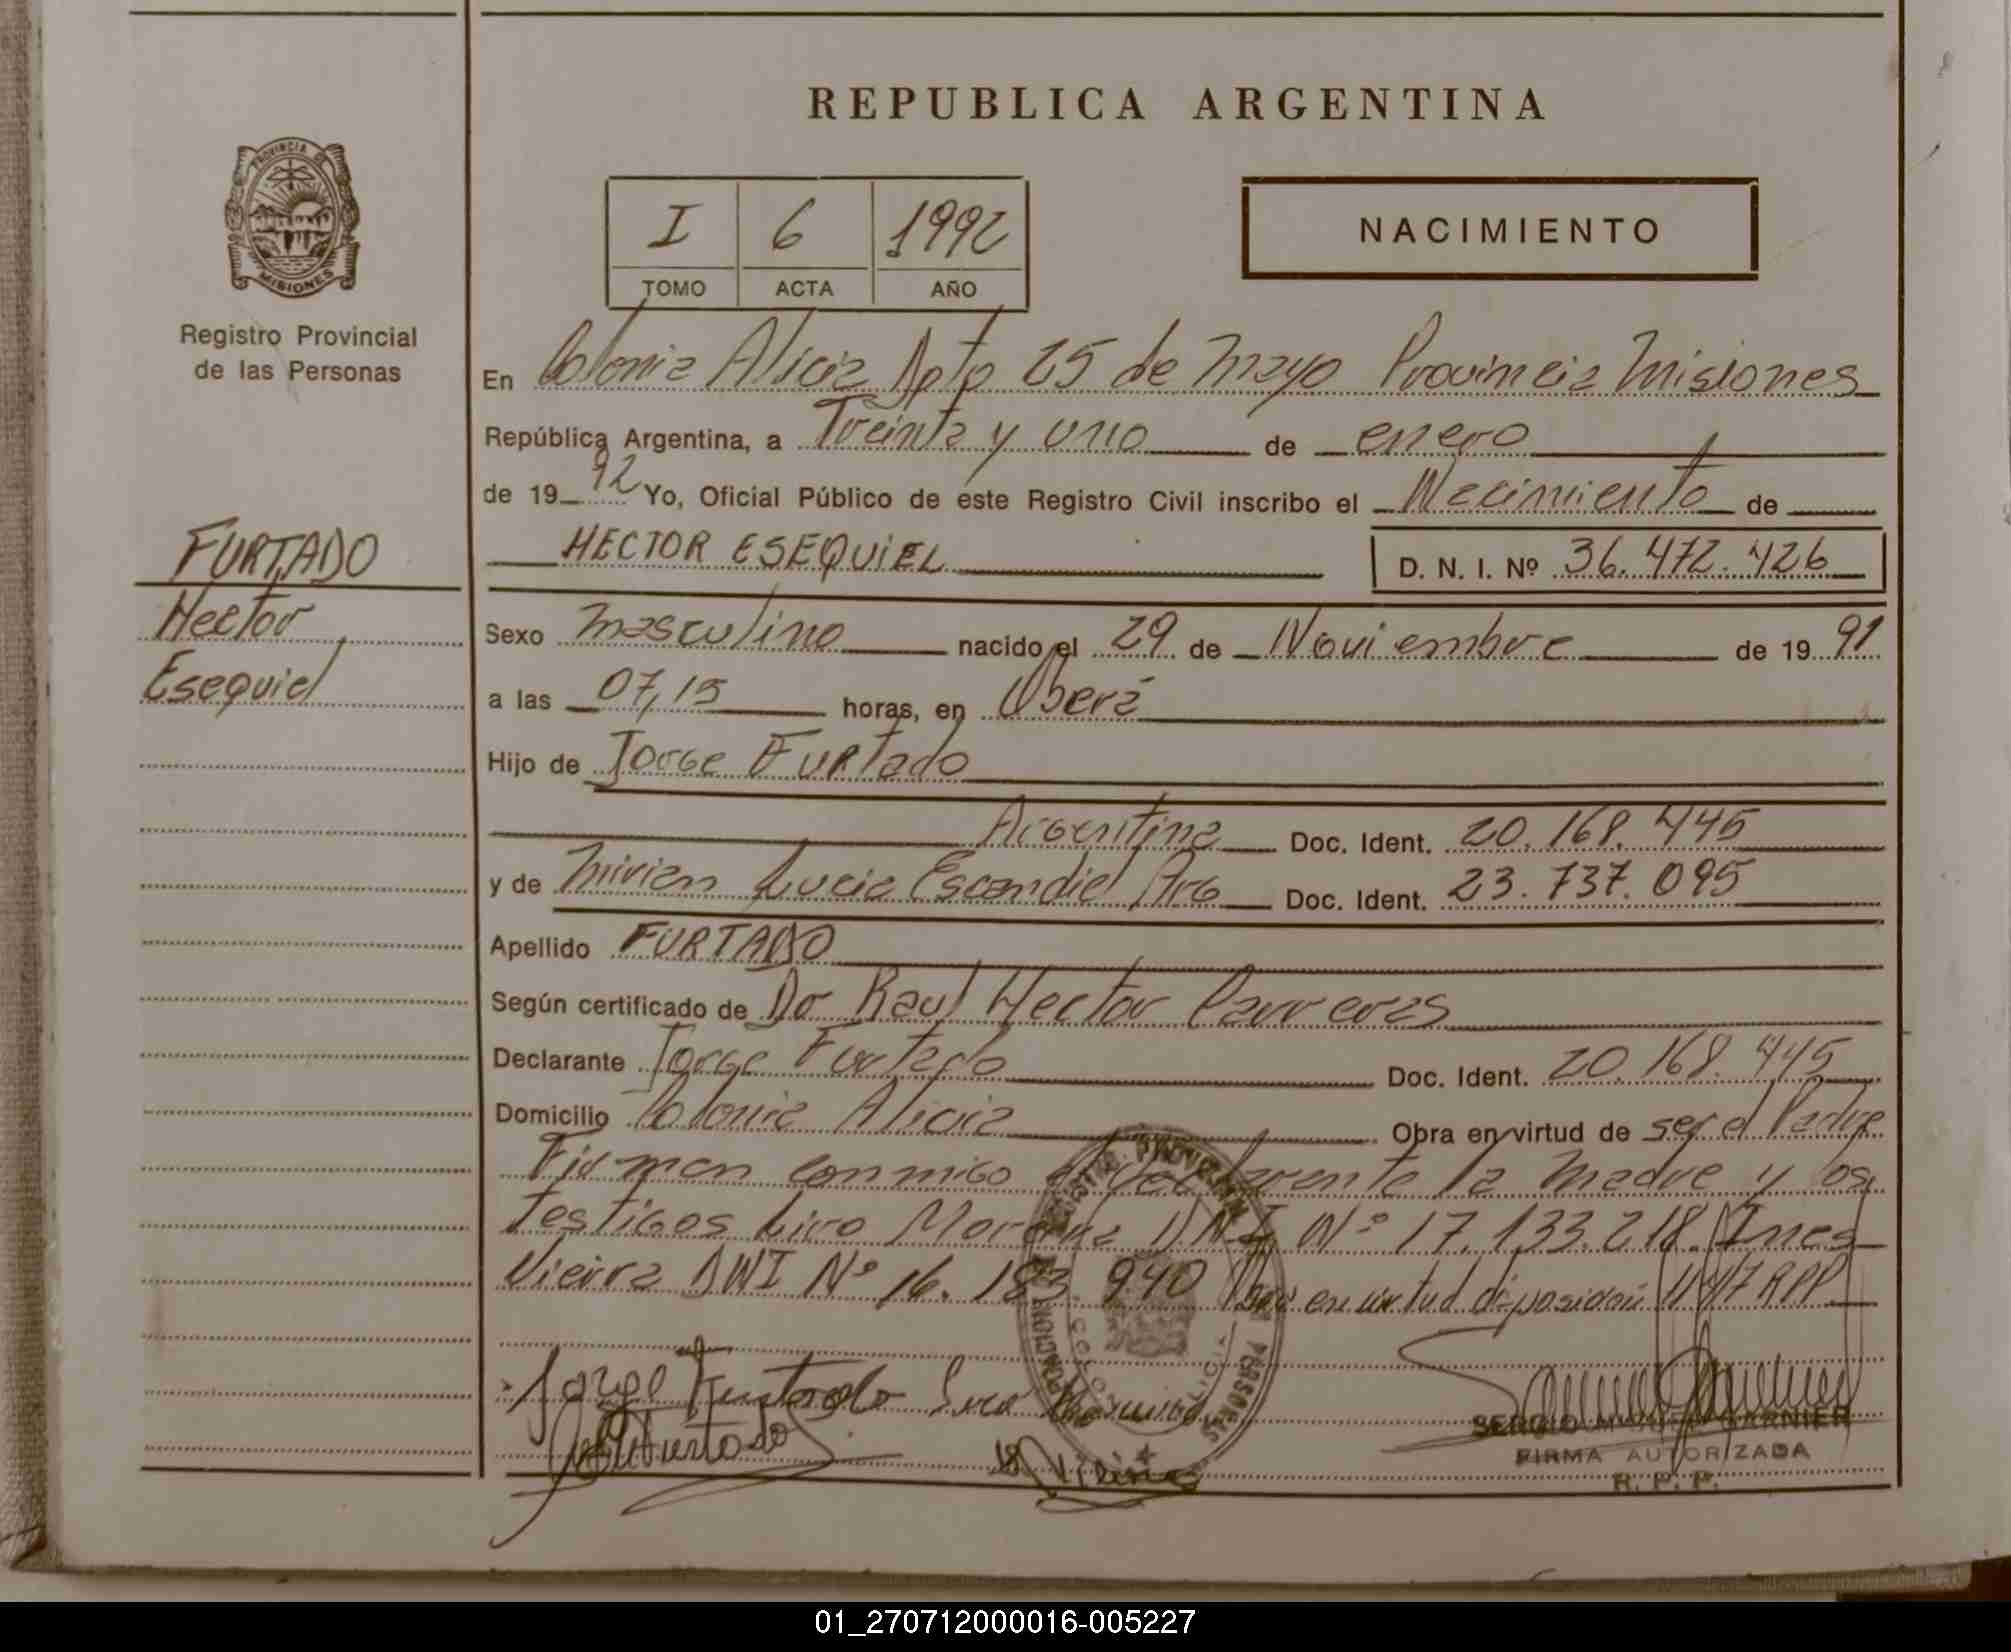 REPUBLICA ARGENTINA
PROVINCIA DE MISIONES
Registro Provincial
de las Personas
I 6 1992
TOMO ACTA AÑO
NACIMIENTO
En Colonia Alicia Dpto 25 de Mayo Provincia Misiones
República Argentina, a Treinta y uno de enero
de 19 92 Yo, Oficial Público de este Registro Civil inscribo el Nacimiento de
HECTOR ESEQUIEL D. N. I. Nº 36.472.426
FURTADO
Hector
Esequiel
Sexo masculino nacido el 29 de Noviembre de 19 91
a las 07,15 horas, en Oberá
Hijo de Jorge Furtado
Argentina Doc. Ident. 20.168.445
y de Mirian Lucia Escandiel Arg Doc. Ident. 23.737.095
Apellido FURTADO
Según certificado de Dr Raul Hector Parreras
Declarante Jorge Furtado Doc. Ident. 20.168.445
Domicilio Colonia Alicia Obra en virtud de ser el Padre
Firman conmigo el declarante la madre y los
testigos Liro Moreira DNI Nº 17.133.218. Ines
Vieira DNI Nº 16.183.940 en virtud disposición 1147 RPP
Jorge Furtado
SERGIO GARNIER
FIRMA AUTORIZADA
R. P. P.
01_270712000016-005227